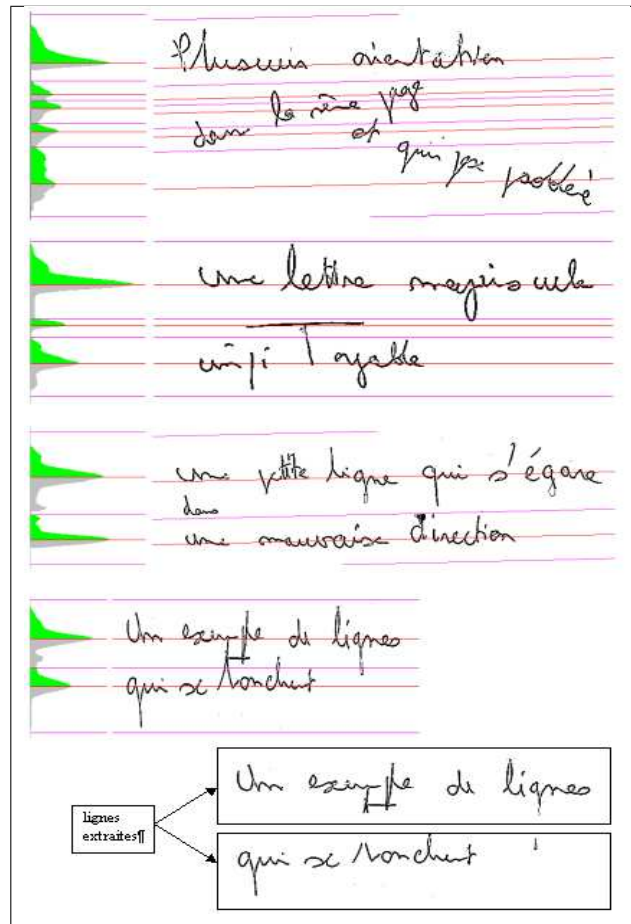 Plusieurs orientation
dans la même page
et
qui pose problème
une lettre majuscule
impi Toyable
une petite ligne qui s'égare
dans
une mauvaise direction
Un exemple de lignes
qui se touchent
lignes
extraites¶
Un exemple de lignes
qui se touchent